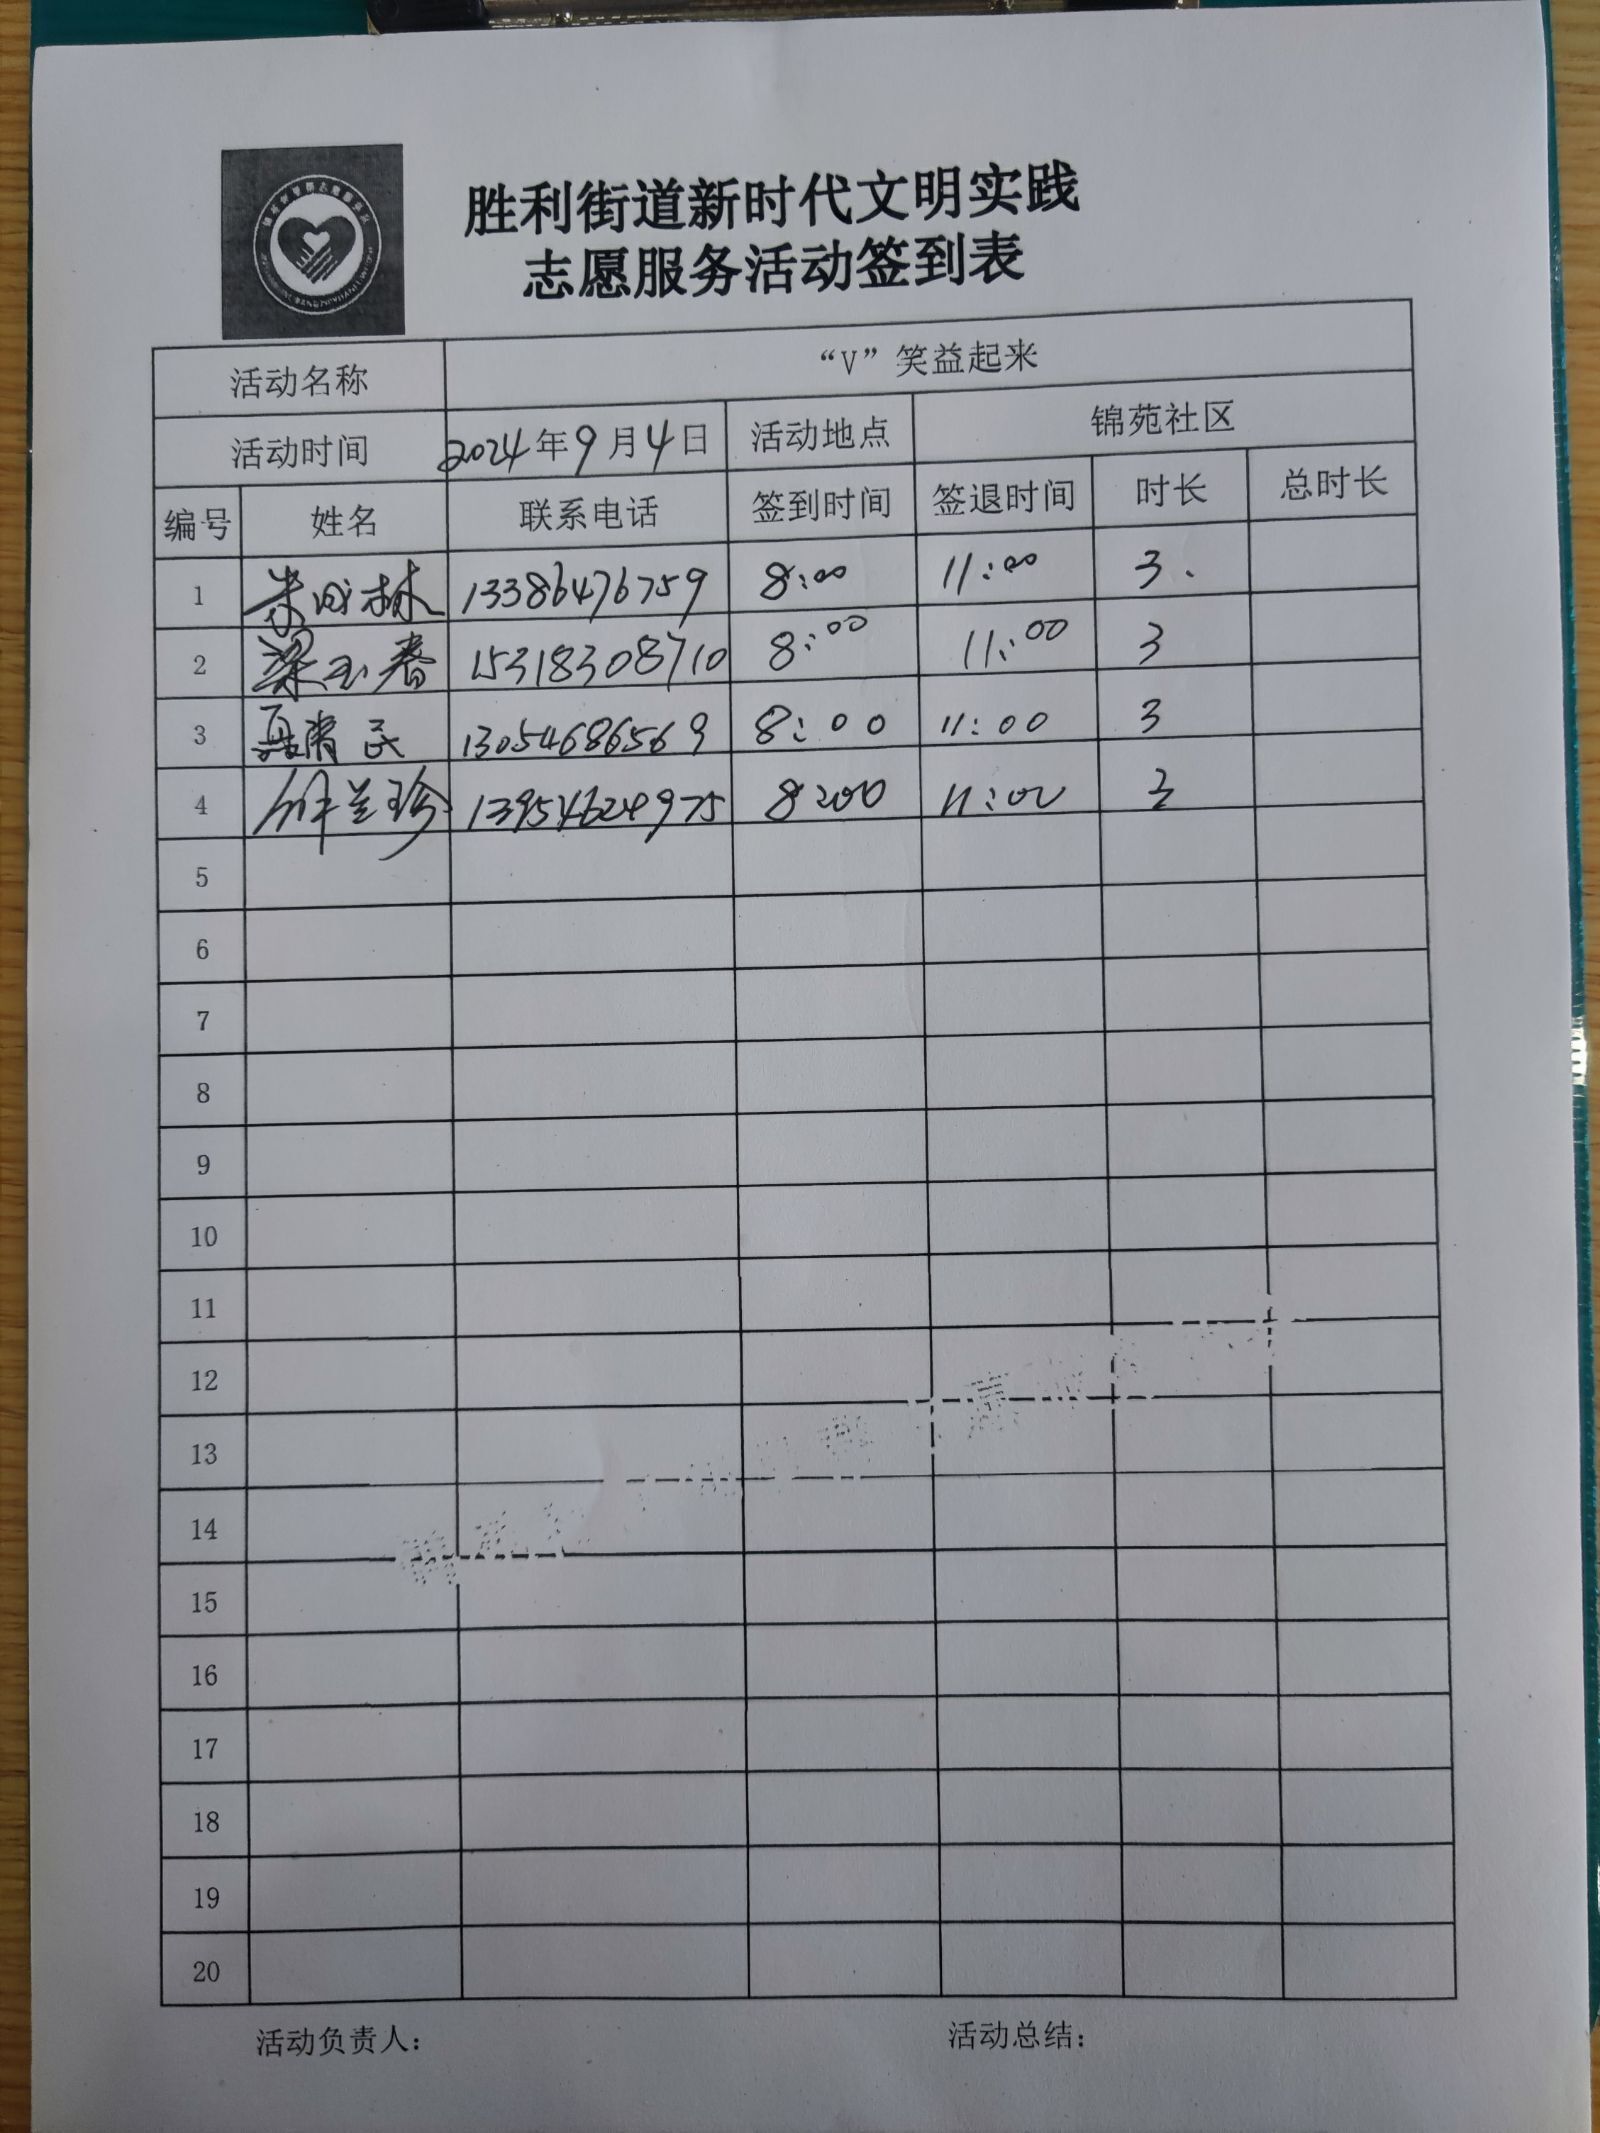 胜利街道新时代文明实践
志愿服务活动签到表
活动名称 “V”笑益起来
活动时间 2024年9月4日 活动地点 锦苑社区
编号 姓名 联系电话 签到时间 签退时间 时长 总时长
1 朱林 13386476759 8:00 11:00 3.
2 梁玉春 15318308710 8:00 11:00 3
3 聂清民 13054686569 8:00 11:00 3
4 兰珍 13954624975 8:00 11:00 3
5
6
7
8
9
10
11
12
13
14
15
16
17
18
19
20
活动负责人: 活动总结: